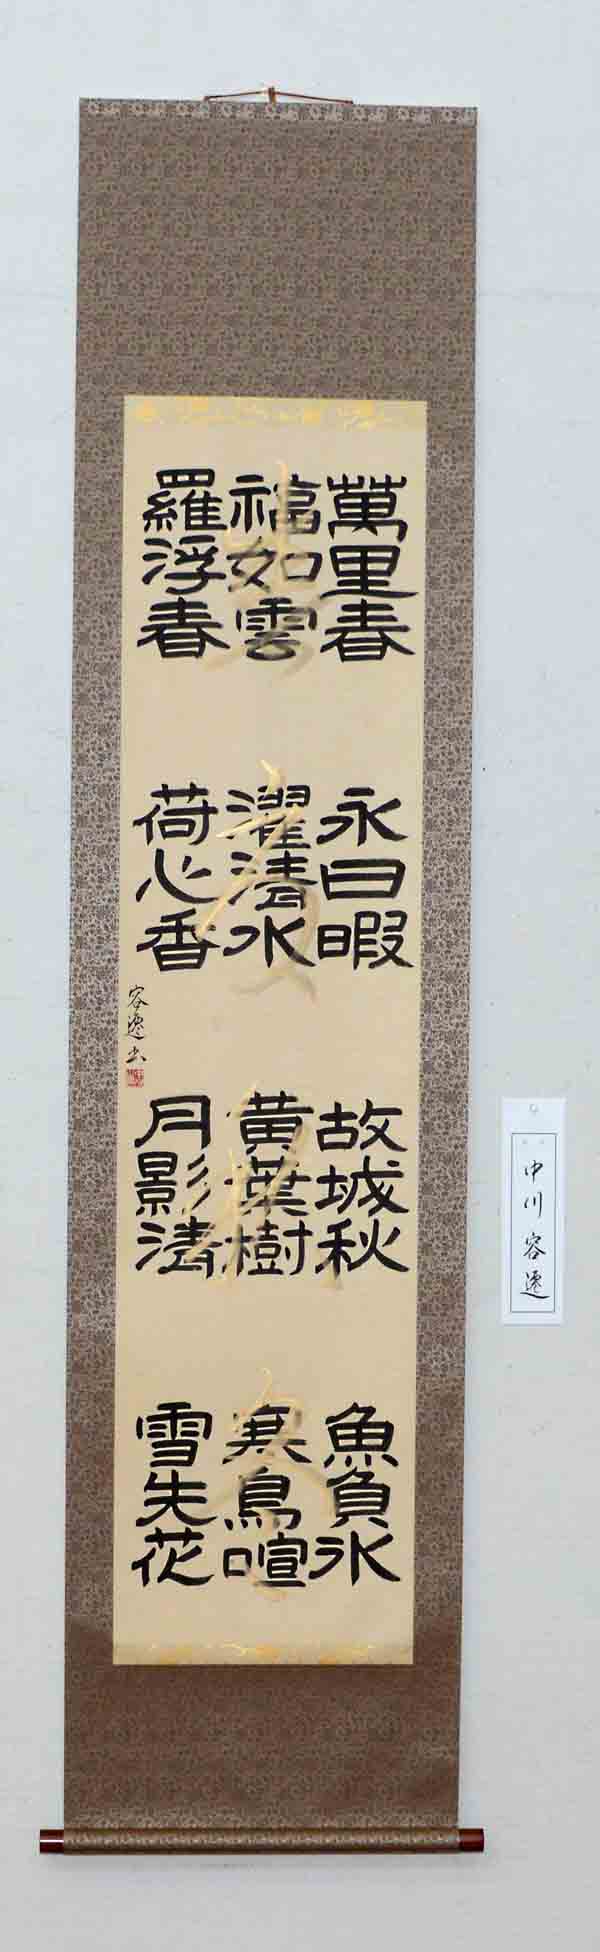 萬里春
福如雲
羅浮春
永日暇
濯清水
荷心香
故城秋
黄葉樹
月影清
魚負氷
寒鳥喧
雪先花
春
夏
秋
冬
容遷書
中川容遷